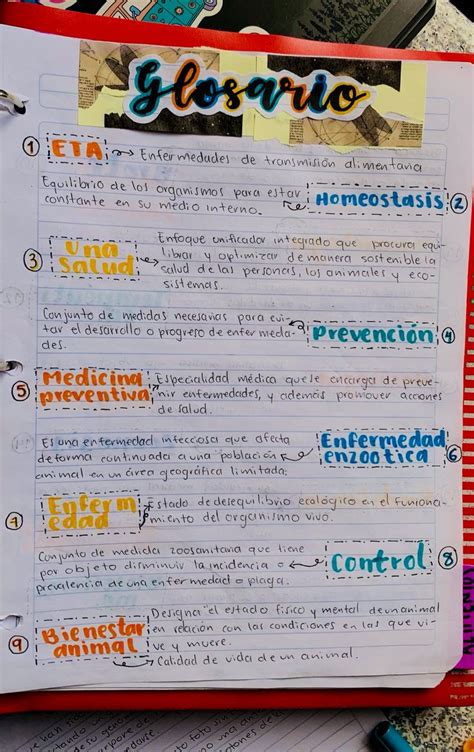 Glosario
1 ETA → Enfermedades de transmisión alimentaria
Equilibrio de los organismos para estar
constante en su medio interno.
Homeostasis 2
3 Una
salud
Enfoque unificador integrado que procura equi-
librar y optimizar de manera sostenible la
salud de las personas, los animales y eco-
sistemas.
Conjunto de medidas necesarias para evi-
tar el desarrollo o progreso de enfermeda-
des.
Prevención 4
5 Medicina
preventiva
Especialidad médica que se encarga de preve-
nir enfermedades, y además promover acciones
de salud.
Es una enfermedad infecciosa que afecta
de forma continuada a una población
animal en un área geográfica limitada;
Enfermedad
enzootica 6
7 Enferm
edad
Estado de desequilibrio ecológico en el funciona-
miento del organismo vivo.
Conjunto de medida zoosanitaria que tiene
por objeto disminuir la incidencia o
prevalencia de una enfermedad o plaga.
Control 8
9 Bienestar
animal
Designa "el estado fisico y mental de un animal
en relación con las condiciones en las que vi-
ve y muere.
→ Calidad de vida de un animal.